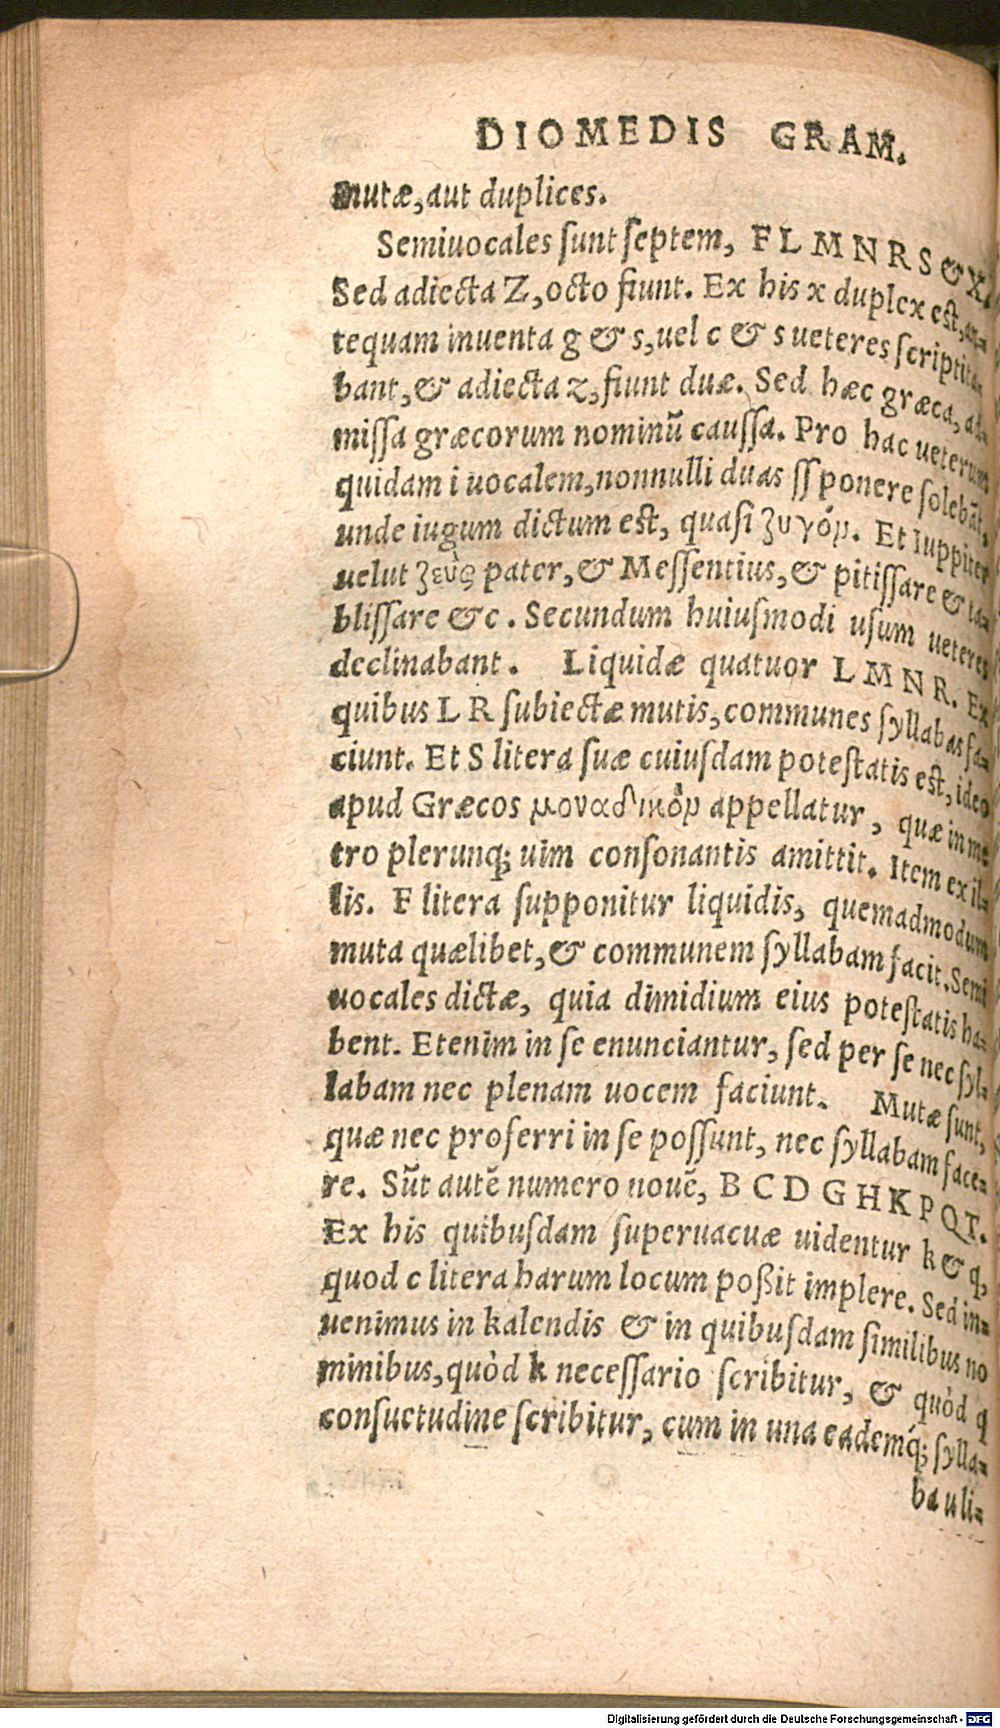 DIOMEDIS GRAM.
mutæ, aut duplices.
Semiuocales ſunt ſeptem, F L M N R S & X.
Sed adiecta Z, octo fiunt. Ex his x duplex est, an-
tequam inuenta g & s, uel c & s ueteres ſcriptita-
bant, & adiecta z, fiunt duæ. Sed hæc græca, ad-
miſſa græcorum nominũ cauſſa. Pro hac ueterum
quidam i uocalem, nonnulli duas ſſ ponere ſolebãt,
unde iugum dictum est, quaſi ζυγόν. Et Iuppiter
uelut ζεὺς pater, & Meſſentius, & pitiſſare & ta-
bliſſare &c. Secundum huiuſmodi uſum ueteres
declinabant. Liquidæ quatuor L M N R. Ex
quibus L R ſubiectæ mutis, communes ſyllabas fa-
ciunt. Et S litera ſuæ cuiuſdam poteſtatis est, ideo
apud Græcos μοναδικὸν appellatur, quæ in me
tro plerunq; uim conſonantis amittit. Item ex il-
lis. F litera ſupponitur liquidis, quemadmodum
muta quælibet, & communem ſyllabam facit. Semi
uocales dictæ, quia dimidium eius poteſtatis ha-
bent. Etenim in ſe enunciantur, ſed per ſe nec ſyl-
labam nec plenam uocem faciunt. Mutæ ſunt,
quæ nec proferri in ſe poſſunt, nec ſyllabam face-
re. Sũt autẽ numero nouẽ, B C D G H K P Q T.
Ex his quibuſdam ſuperuacuæ uidentur k & q,
quod c litera harum locum poßit implere. Sed in-
uenimus in kalendis & in quibuſdam ſimilibus no
minibus, quòd k neceſſario ſcribitur, & quòd q
conſuetudine ſcribitur, cum in una eademq́; ſylla-
ba uli-
Digitalisierung gefördert durch die Deutsche Forschungsgemeinschaft - DFG